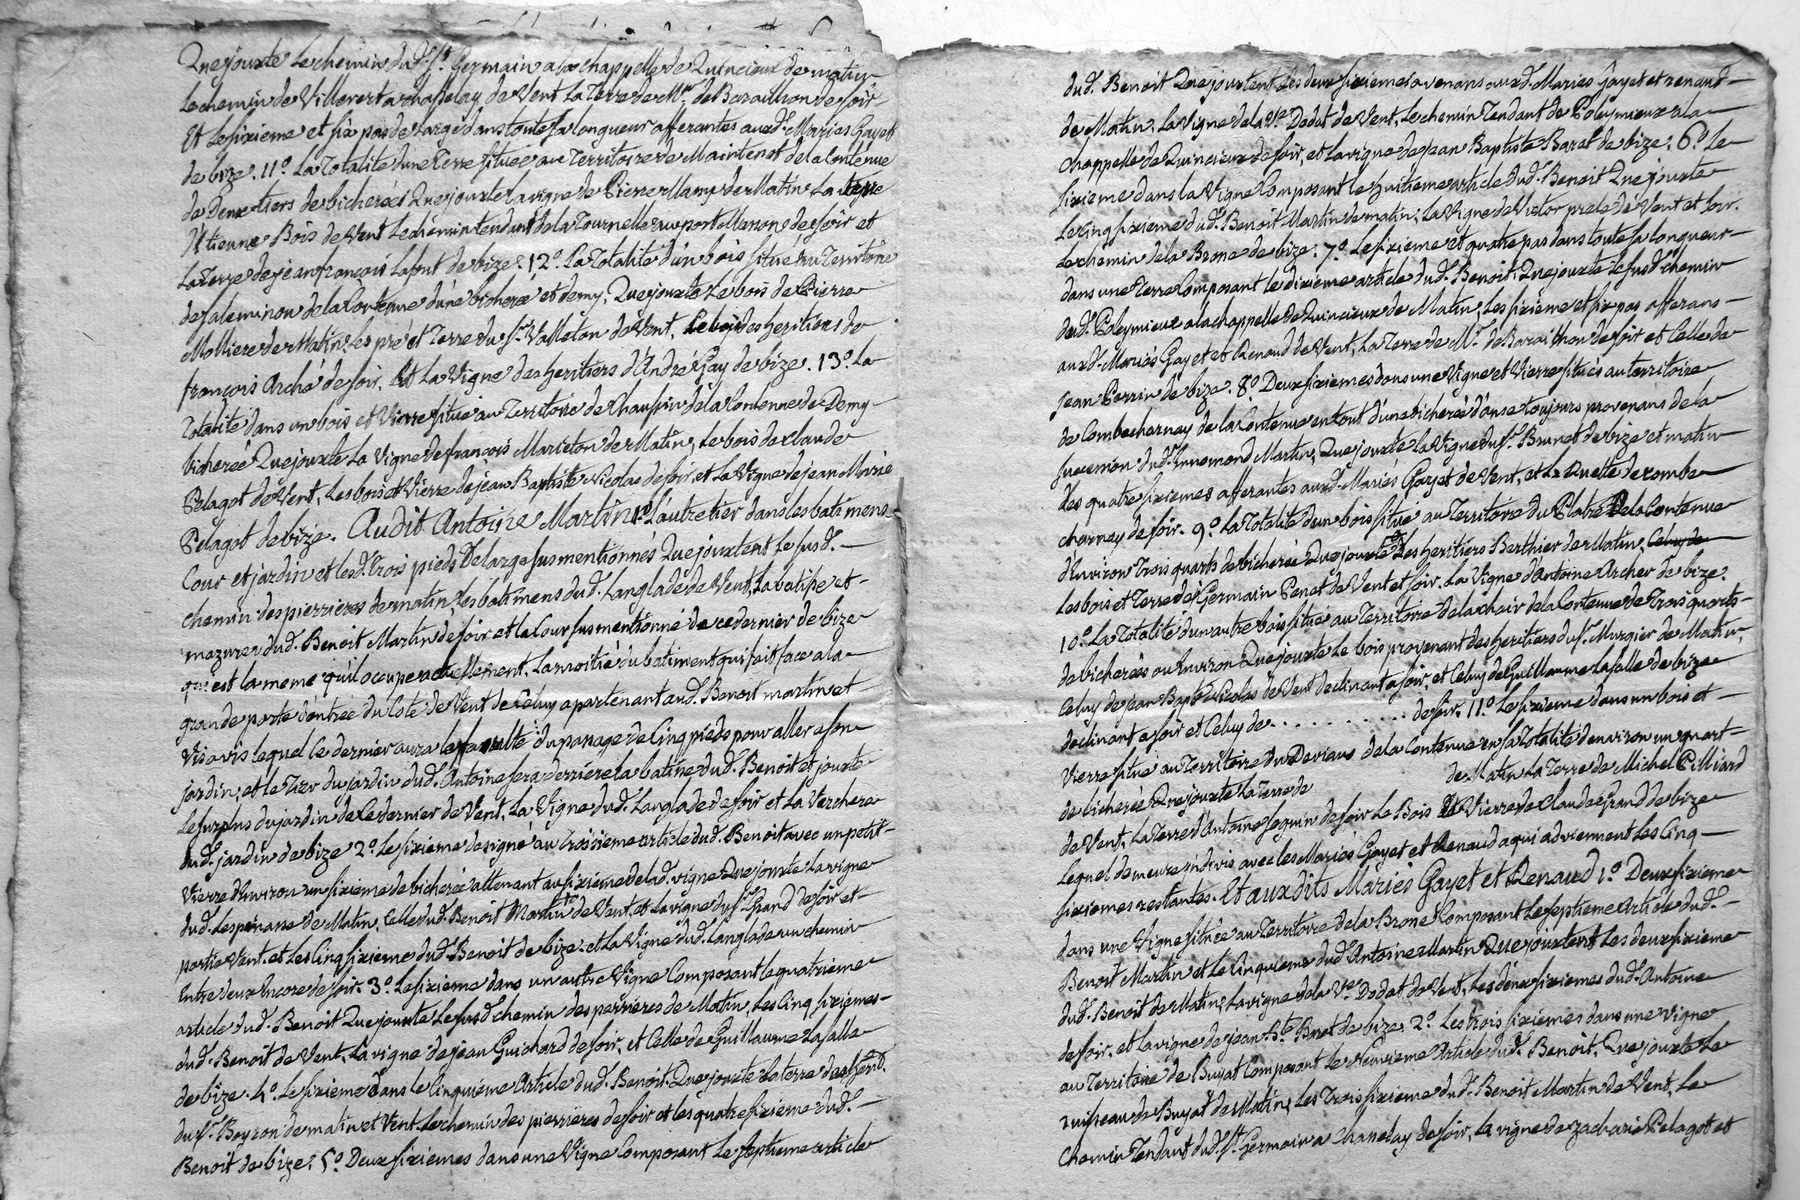 Quejouxte Le chemin dud. St. Germain a la chappelle de Quincieux de matin
Le chemin de Villevert a chasselay de Vent La Terre de Mr. de Baraillhon de soir
Et le sixieme et six pas de large dans toute sa longueur afferantes auxd. Mariés Gayet
de bize. 11º. La Totalité d'une Terre située au Territoire de Maintenot de la Contenue
de Deux tiers de bicherée Quejouxte La vigne de Pierre Mamy de Matin La terre
d'Etienne Bois de Vent Le chemin tendant de la Tournelle au port Macon de soir et
La Terre de jean françois Lafont de bize. 12º. La Totalité d'un bois situé au Territoire
de Saleminou de la Contenue d'une bicherée et demy, Quejouxte Le bois de Pierre
Molliere de Matin Les pré et Terre du Sr. Valleton de Vent, Le bois des heritiers de
françois Arché de soir, Et La Vigne des heritiers d'André Gay de bize. 13º. La
Totalité dans un bois et Vierre situé au Territoire de Chaussin de la Contenue de Demy
bicherée Quejouxte La Vigne de françois Marieton de Matin, Le bois de Claude
Pelagot de Vent, Les bois et Vierre de jean Baptiste Nicolas de soir, et La Vigne de jean Marie
Pelagot de bize. Audit Antoine Martin 1º. L'autre tier dans les batimens
Cour et jardin et lesd. Trois pieds de large susmentionnés Quejouxtent Le susd.
chemin des pierrieres de matin Les batimens dud. Langlade de Vent, La batisse et
mazures dud. Benoit Martin de soir et la Cour susmentionné de ce dernier de bize
qui est la meme qu'il occupe actuellement. La moitié du batiment qui fait face a la
grande porte d'entrée du Coté de Vent de Celuy apartenant aud. Benoit martin et
Vis a vis lequel Ce dernier aura la faculté du passage de Cinq pieds pour aller a son
jardin, et le Tier du jardin dud. Antoine sera derriere la batisse dud. Benoit et jouxte
Le surplus du jardin de Ce dernier de Vent, La Vigne dud. Langlade de soir et La Verchere
dud. jardin de bize 2º. Le sixieme designé au Troisieme article dud. Benoit avec un petit
Vierre d'Environ un sixieme de bicherée attenant au sixieme de lad. vigne Quejouxte La vigne
dud. Lespinasse de Matin, Celle dud. Benoit Martin de Vent, et La vigne du Sr. Grand de soir et
partie Vent, et Les Cinq sixieme dud. Benoit de bize. et La Vigne dud. Langlade un chemin
Entre deux Encore de soir. 3º. Le sixieme dans un autre Vigne Composant le quatrieme
article dud. Benoit Quejouxte Le susd. chemin des perrieres de Matin, Les Cinq sixiemes
dud. Benoit de Vent, La vigne de jean Guichard de soir, et Celle de Guillaume Lafalle
de bize. 4º. Le sixieme dans le Cinquieme Article dud. Benoit. Quejouxte La terre
du Sr. Boyron de matin et Vent Le chemin des pierrieres de soir et les quatre sixieme dud.
Benoit de bize. 5º. Deux sixiemes dans une Vigne Composant Le septieme article
dud. Benoit Quejouxtent Les deux sixiemes avenans auxd. Mariés Gayet et renaud
de Matin, La Vigne de la Ve. Dodat de Vent, Le chemin Tendant de Poleymieux a la
chappelle de Quincieux de soir, et La vigne de Jean Baptiste Barat de bize. 6º. Le
sixieme dans la Vigne Composant le huitieme article dud. Benoit Quejouxte
Le cinq sixieme dud. Benoit Martin de matin, La Vigne de Victor prele de Vent et soir.
Le chemin de la Brone de bize. 7º. Le sixieme et quatre pas dans toute sa longueur
dans une Terre Composant le dixieme article dud. Benoit. Quejouxte Le susd. chemin
dud. Poleymieux a la chappelle de Quincieux de Matin, Les sixieme et six pas afferans
auxd. Mariés Gayet et Renaud de Vent, La Terre de Mr. de Baraillhon de soir et Celle de
Jean Perrin de bize. 8º. Deux sixiemes dans une Vigne et Vierre situés au territoire
de Combecharnay de la Contenue en tout d'une bicherée d'anse toujours provenans de la
succession dud. Ennemond Martin, Quejouxte La Vigne du Sr. Brunet de bize et matin
Les quatre sixiemes afferantes auxd. Mariés Gayet de Vent, et La de combe
charnay de soir. 9º. La Totalité d'un bois situé au Territoire du Platre De la Contenue
d'Environ Trois quarts de bicherée Quejouxte Les heritiers Berthier de Matin,
Les bois et Terre de Germain Penet de Vent et soir. La Vigne d'Antoine Archer de bize.
10º. La Totalité d'un autre bois situé au Territoire de la chair de la Contenue de Trois quarts
de bicherés ou Environ Quejouxte Le bois provenant des heritiers du Sr. Murgier de Matin,
Celuy de jean Bapte. Nicolas de Vent declinant a soir, et Celuy de Guillaume Lafalle de bize
declinant a soir et Celuy de . . . . . . . . . . . de soir. 11º. Le sixieme dans un bois et
Vierre situé au Territoire du Deviaux de la Contenue en sa Totalité d'environ un quart
de bicherée Quejouxte La Terre de de Matin La Terre de Michel Pilliard
de Vent, La Terre d'Antoine Seguin de soir Le Bois Et Vierre de Claude Grand de bize
Lequel demeure indivis avec les Mariés Gayet et Renaud a qui adviennent Les Cinq
sixiemes restantes. Et auxdits Mariés Gayet et Renaud 1º. Deux sixieme
dans une Vigne située au Territoire de la Brone Composant Le septieme Article dud.
Benoit Martin et le Cinquieme dud. Antoine Martin Quejouxtent Les deux sixieme
dud. Benoit de Matin, La vigne de la Ve. Dodat de Vent, Les deux sixiemes dud. Antoine
de soir, et La vigne de jean Bte. Barat de bize. 2º. Les trois sixiemes dans une Vigne
au Territoire de Buyat Composant Le Neuvieme Article dud. Benoit, Quejouxte Le
ruisseau de Buyat de Matin, Les Trois sixieme dud. Benoit Martin de Vent, Le
Chemin Tendant dud. St. Germain a Chasselay de soir, La vigne de Zacharie Pelagot et